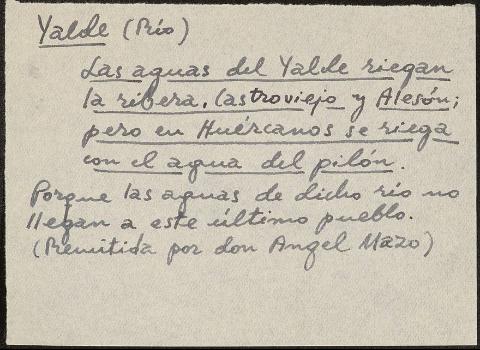 Yalde (Río)
Las aguas del Yalde riegan
la ribera, Castroviejo y Alesón;
pero en Huércanos se riega
con el agua del pilón.
Porque las aguas de dicho río no
llegan a este último pueblo.
(Remitida por don Angel Mazo)